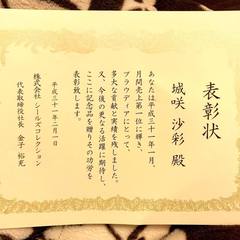 表彰状
城咲 沙彩 殿
あなたは平成三十一年一月、
月間売上第一位に輝き、
ブランディアにとって、
多大な貢献と実績を残しました。
又、今後の更なる活躍に期待し、
ここに記念品を贈りその功労を
表彰致します。
平成三十一年二月一日
株式会社 シールズコレクション
代表取締役社長 金子 裕充